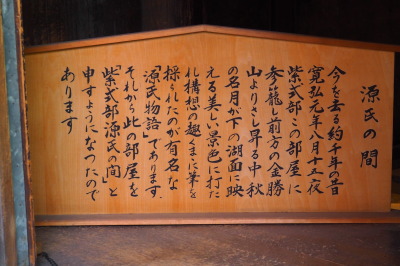 源氏の間
今を去る約千年の昔
寛弘元年八月十五夜
紫式部この部屋に
参籠し前方の金勝
山よりさし昇る中秋
の名月が下の湖面に映
える美しい景色に打た
れ構想の趣くまゝに筆を
採られたのが有名な
「源氏物語」であります
それから此の部屋を
「紫式部源氏の間」と
申すようになつたので
あります